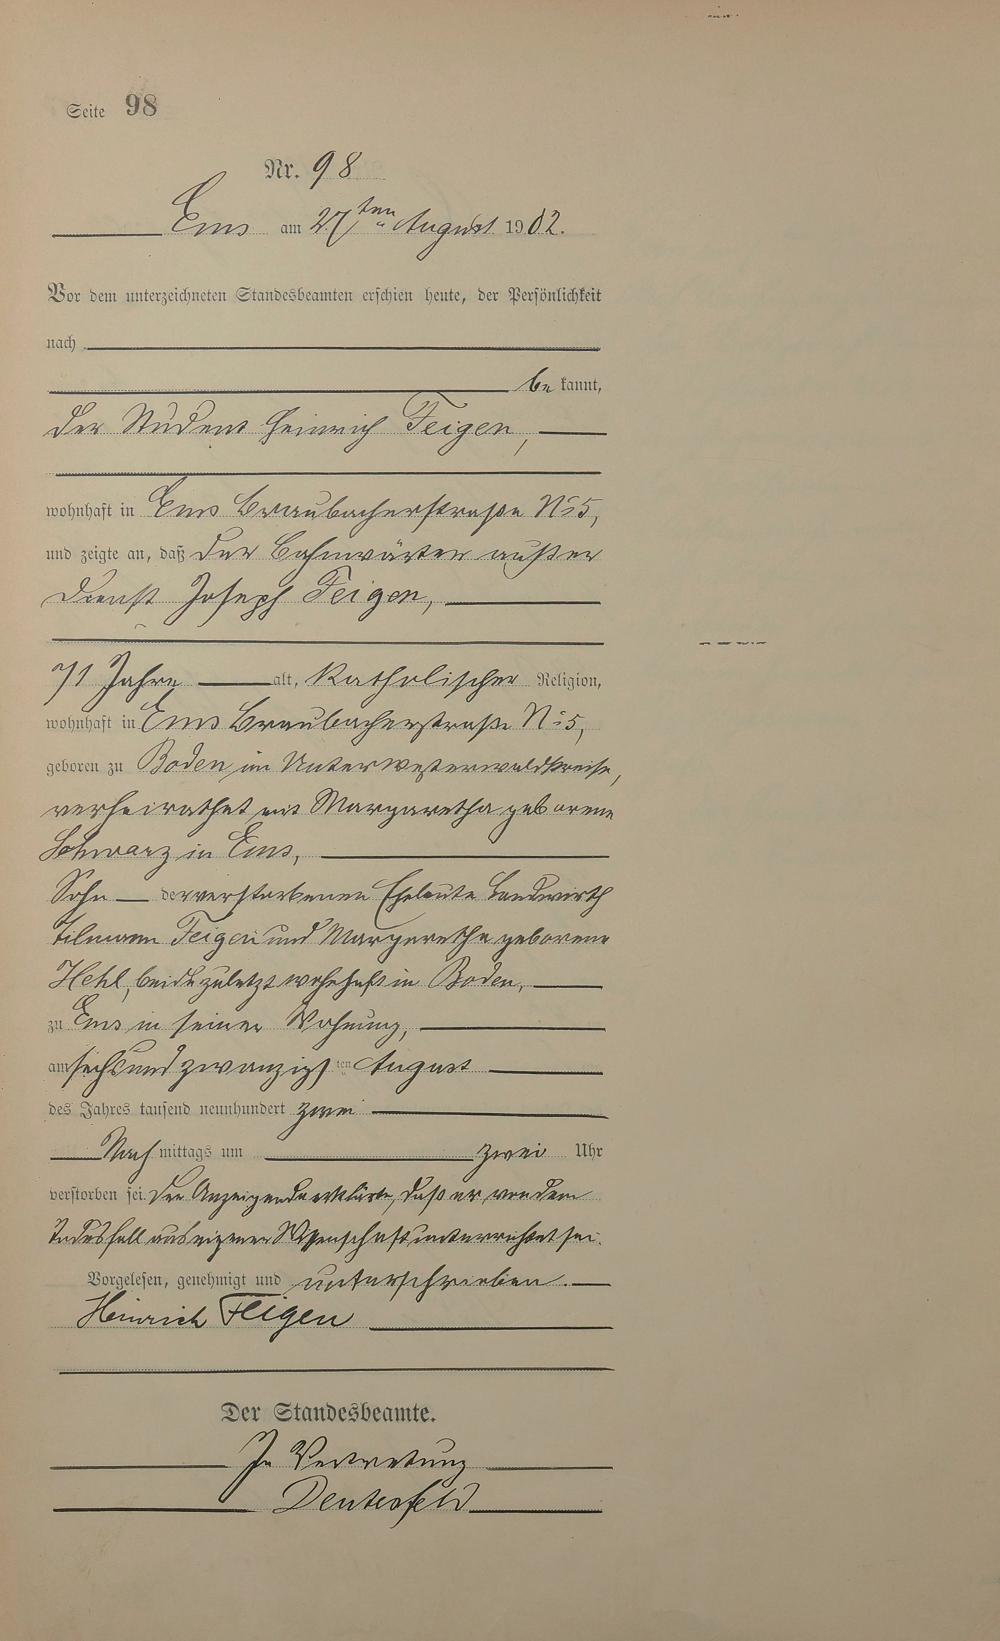 Seite 98
Nr. 98
Ems am 27ten August 1902.
Vor dem unterzeichneten Standesbeamten erschien heute, der Persönlichkeit
nach
be kannt,
der Student Heinrich Feigen,
wohnhaft in Ems Braubacherstraße No 5,
und zeigte an, daß der Bahnwärter außer
Dienst Joseph Feigen,
71 Jahre alt, katholischer Religion,
wohnhaft in Ems Braubacherstraße No 5,
geboren zu Boden im Unterwesterwaldkreise,
verheirathet mit Margaretha geborene
Schwarz in Ems,
Sohn der verstorbenen Eheleute Landwirth
Tilmann Feigen und Margaretha geborene
Hehl, beide zuletzt wohnhaft in Boden,
zu Ems in seiner Wohnung,
am sechsundzwanzigsten August
des Jahres tausend neunhundert zwei
Nachmittags um zwei Uhr
verstorben sei. Der Anzeigende erklärte, daß er von dem
Todesfall aus eigener Wissenschaft unterrichtet sei.
Vorgelesen, genehmigt und unterschrieben.
Heinrich Feigen
Der Standesbeamte.
In Vertretung